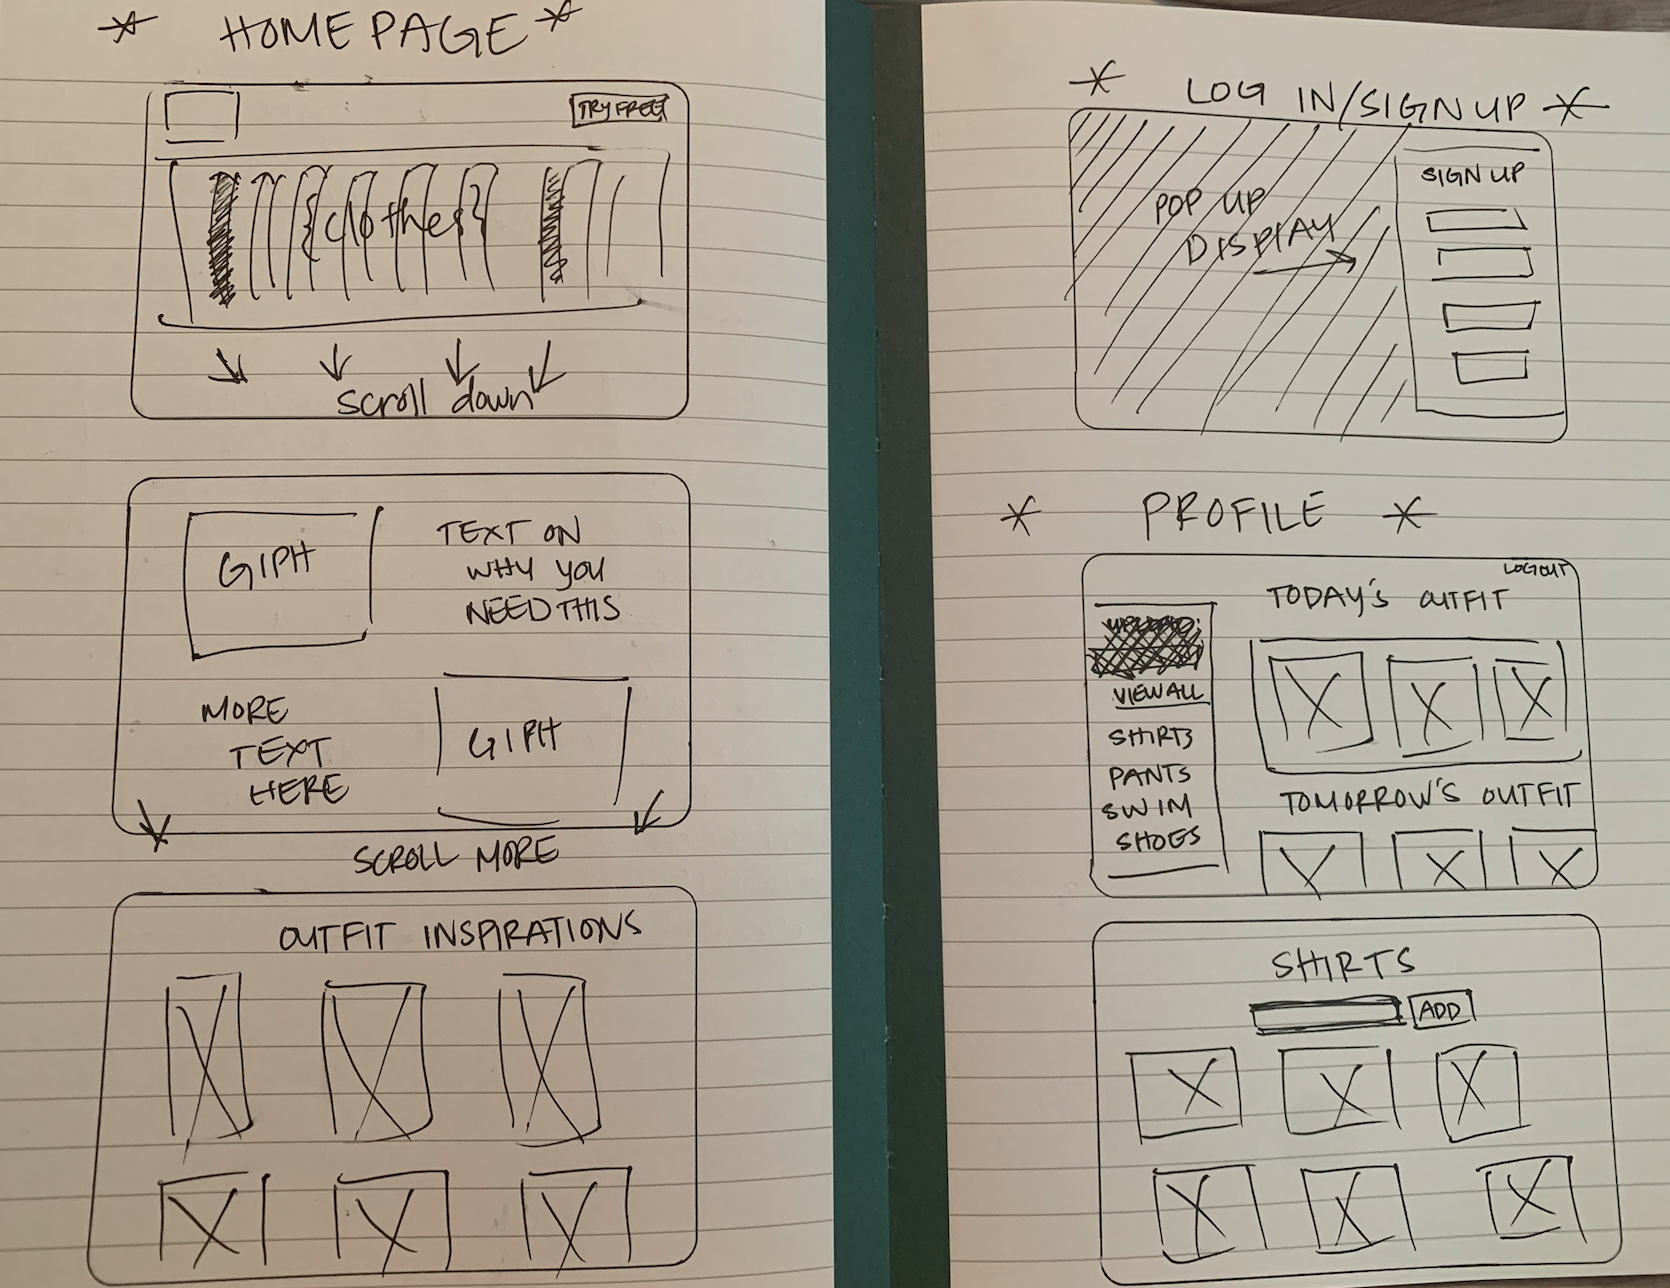 HOME PAGE
TRY FREE
{clothes}
scroll down
GIPH
TEXT ON
WHY YOU
NEED THIS
MORE
TEXT
HERE
GIPH
SCROLL MORE
OUTFIT INSPIRATIONS
LOG IN/SIGN UP
SIGN UP
POP UP
DISPLAY
PROFILE
LOGOUT
TODAY'S OUTFIT
VIEW ALL
SHIRTS
PANTS
SWIM
SHOES
TOMORROW'S OUTFIT
SHIRTS
ADD